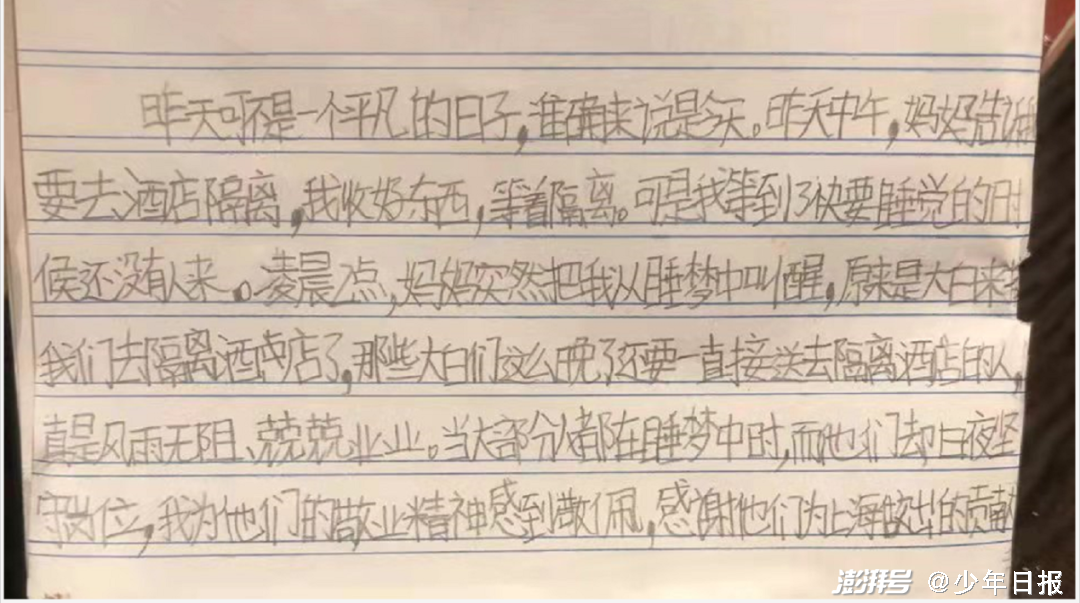 昨天可不是一个平凡的日子，准确来说是今天。昨天中午，妈妈告诉我
要去酒店隔离，我收好东西，等着隔离。可是我等到了快要睡觉的时
候还没有人来。凌晨2点，妈妈突然把我从睡梦中叫醒，原来是大白来接
我们去隔离酒店了，那些大白们这么晚了还要一直接送去隔离酒店的人，
真是风雨无阻、兢兢业业。当大部分人都在睡梦中时，而他们却日夜坚
守岗位，我为他们的敬业精神感到敬佩，感谢他们为上海做出的贡献
澎湃号 @少年日报